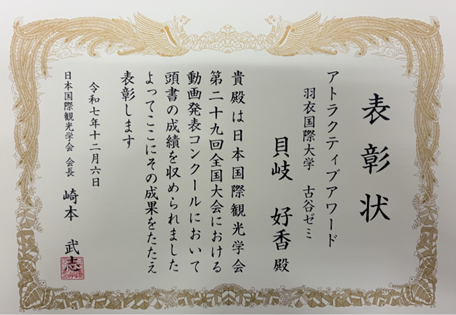 表彰状
アトラクティブアワード
羽衣国際大学 古谷ゼミ
貝岐 好香 殿
貴殿は日本国際観光学会
第二十九回全国大会における
動画発表コンクールにおいて
頭書の成績を収められました
よってここにその成果をたたえ
表彰します
令和七年十二月六日
日本国際観光学会 会長 崎本 武志